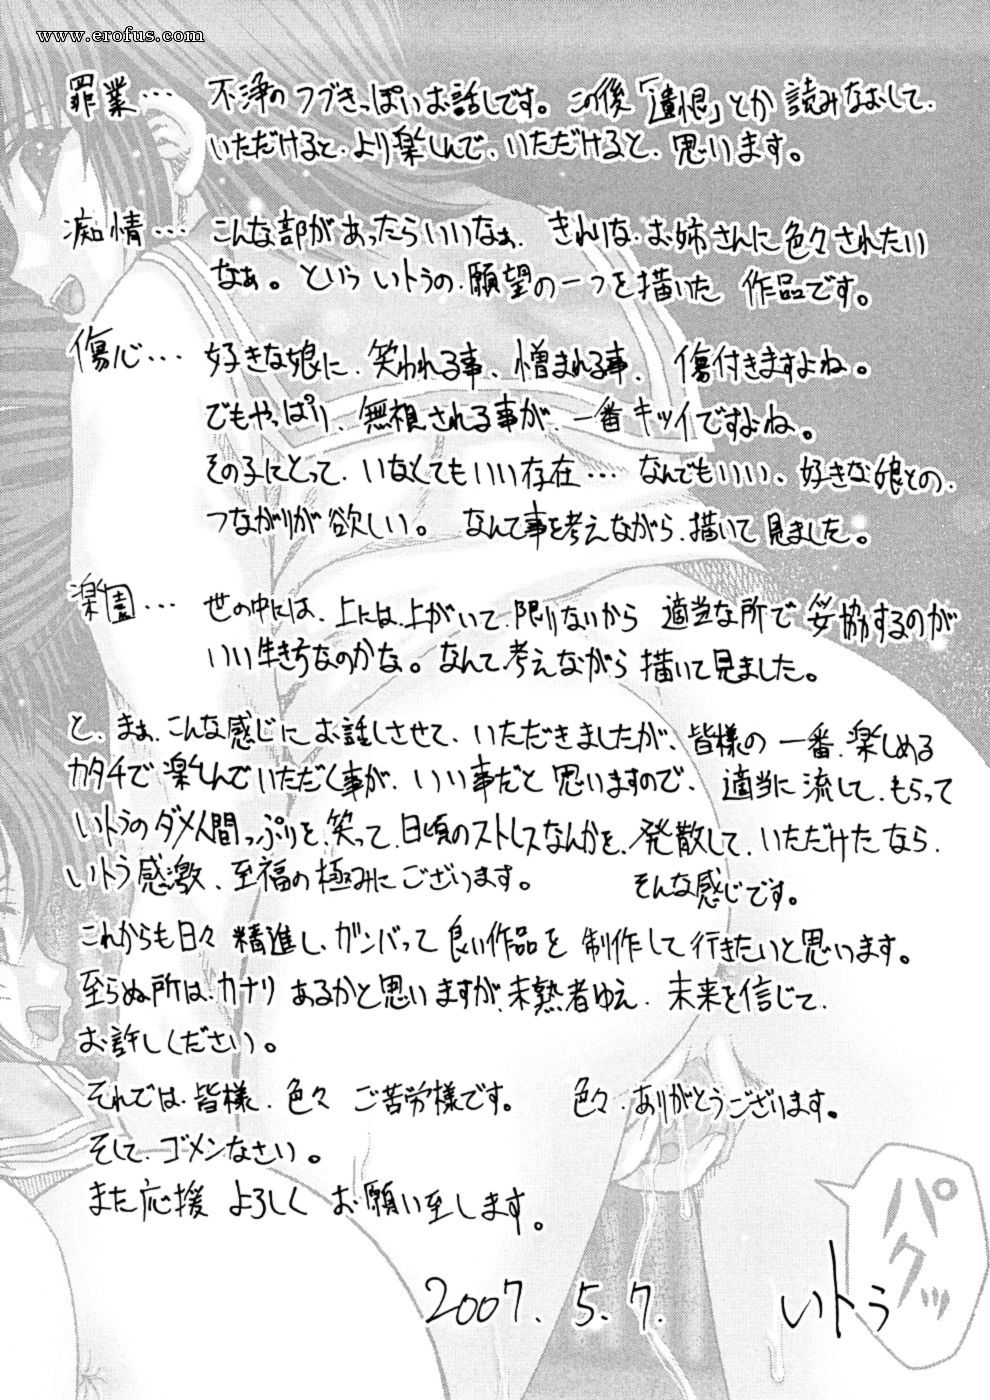 www.erofus.com
罪業… 不浄のつづきっぽいお話しです。この後「遺恨」とか読みなおして、
いただけると、より楽しんで、いただけると、思います。
痴情… こんな部があったらいいなぁ、きれいな、お姉さんに色々されたい
なぁ。という いトうの、願望の一つを描いた 作品です。
傷心… 好きな娘に、笑われる事、憎まれる事、傷付きますよね。
でもやっぱり、無視される事が、一番キツイですよね。
その子にとって、いなくてもいい存在… なんでもいい、好きな娘との、
つながりが欲しい。なんて事を考えながら、描いて見ました。
楽園… 世の中には、上には、上がいて、限りないから 適当な所で妥協するのが
いい生き方なのかな。なんて考えながら描いて見ました。
と、まぁ、こんな感じにお話しさせて、いただきましたが、皆様の一番、楽しめる
カタチで楽しんでいただく事が、いい事だと思いますので、適当に流して、もらって
いトうのダメ人間っぷりを、笑って、日頃のストレスなんかを、発散して、いただけたなら、
いトう感激、至福の極みにございます。 そんな感じです。
これからも日々精進し、ガンバって良い作品を制作して行きたいと思います。
至らぬ所は、カナリあるかと思いますが、未熟者ゆえ、未来を信じて、
お許しください。
それでは、皆様、色々ご苦労様です。 色々、ありがとうございます。
そして、ゴメンなさい。
また応援よろしくお願い至します。
パクッ
2007.5.7. いトう